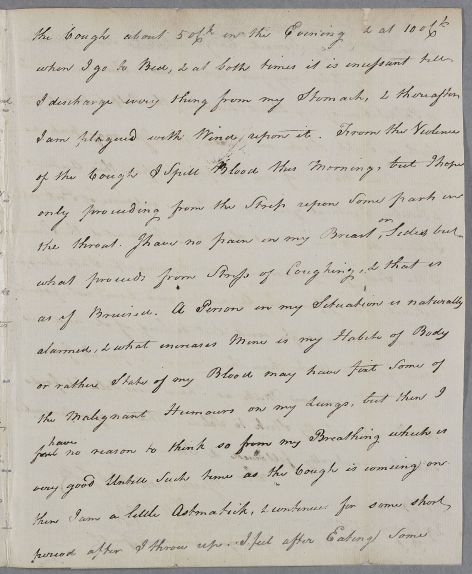 the Cough about 5 oClk in the Evening & at 10 oClk
when I go to Bed, & at both times it is incessant till
I discharge every thing from my Stomach, & thereafter
I am plagued with Wind upon it. From the Violence
of the Cough I Spitt Blood this Morning, but I hope
only proceeding from the Stress upon some parts in
the throat. I have no pain in my Breast, or Sides but
what proceeds from Stress of Coughing, & that is
as if Bruised. A Person in my Situation is naturally
alarmed, & what increases Mine is my Habite of Body
or rather State of my Blood may have fixt some of
the Malignant Humours on my Lungs, but then I
have no reason to think so from my Breathing which is
very good Untill such time as the Cough is coming on
then I am a little Astmatick, & continue for some short
period after I throw up. I feel after Eating some